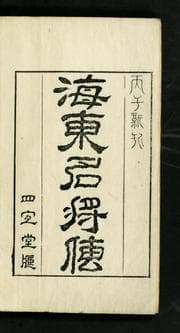 丙子新刊
海東名將傳
四宜堂版